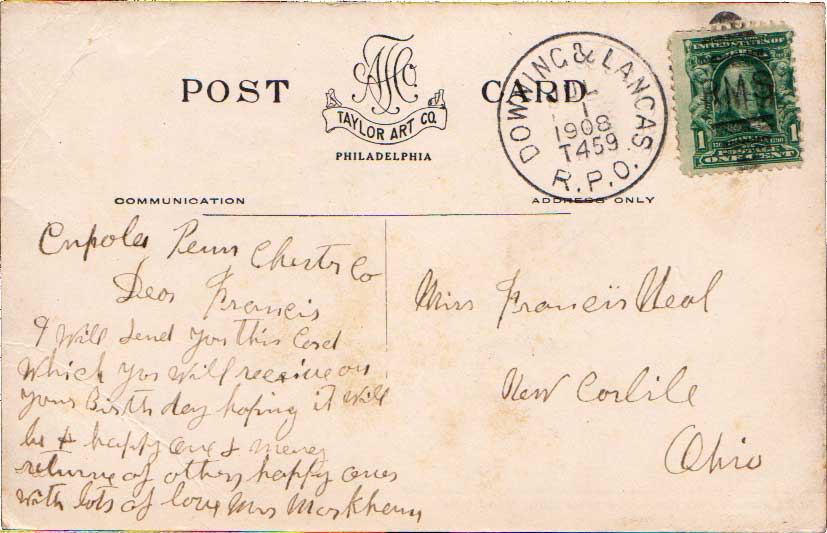 POST CARD
TAYLOR ART CO.
PHILADELPHIA
DOWNING & LANCAS.
1
1908
T459
R.P.O.
UNITED STATES OF
RMS
1 1
FRANKLIN
POSTAGE
ONE CENT
COMMUNICATION
ADDRESS ONLY
Cupola Penn Chester Co
Dear Francis
I will send you this Card
which you will receive on
your Birth day hoping it will
be a happy one & meney
returne of other happy ones
with lots of love Mrs Markham
Miss Francis Neal
New Carlile
Ohio